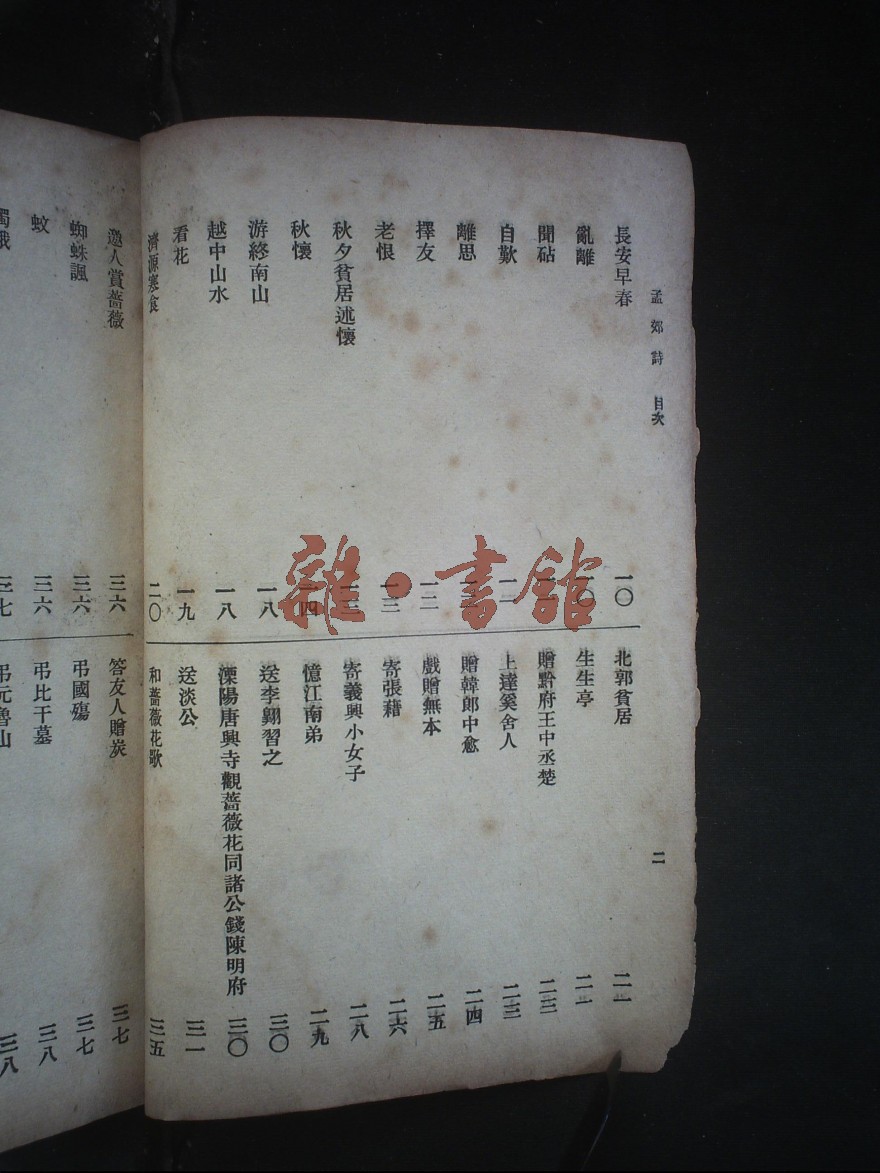 孟郊詩 目次
二
長安早春 一〇
亂離 一〇
聞砧
自歎 一一
離思
擇友 一二
老恨 一三
秋夕貧居述懷
秋懷 一四
游終南山 一八
越中山水 一八
看花 一九
濟源寒食 二〇
北郭貧居
生生亭
贈黔府王中丞楚
上達奚舍人 二三
贈韓郎中愈 二四
戲贈無本 二五
寄張籍 二六
寄義興小女子 二八
憶江南弟 二九
送李翺習之 三〇
溧陽唐興寺觀薔薇花同諸公餞陳明府 三〇
送淡公 三一
和薔薇花歌 三五
邀人賞薔薇 三六
蜘蛛諷 三六
蚊 三六
燭蛾 三七
答友人贈炭 三七
弔國殤 三七
弔比干墓 三八
弔元魯山 三八
雜·書館